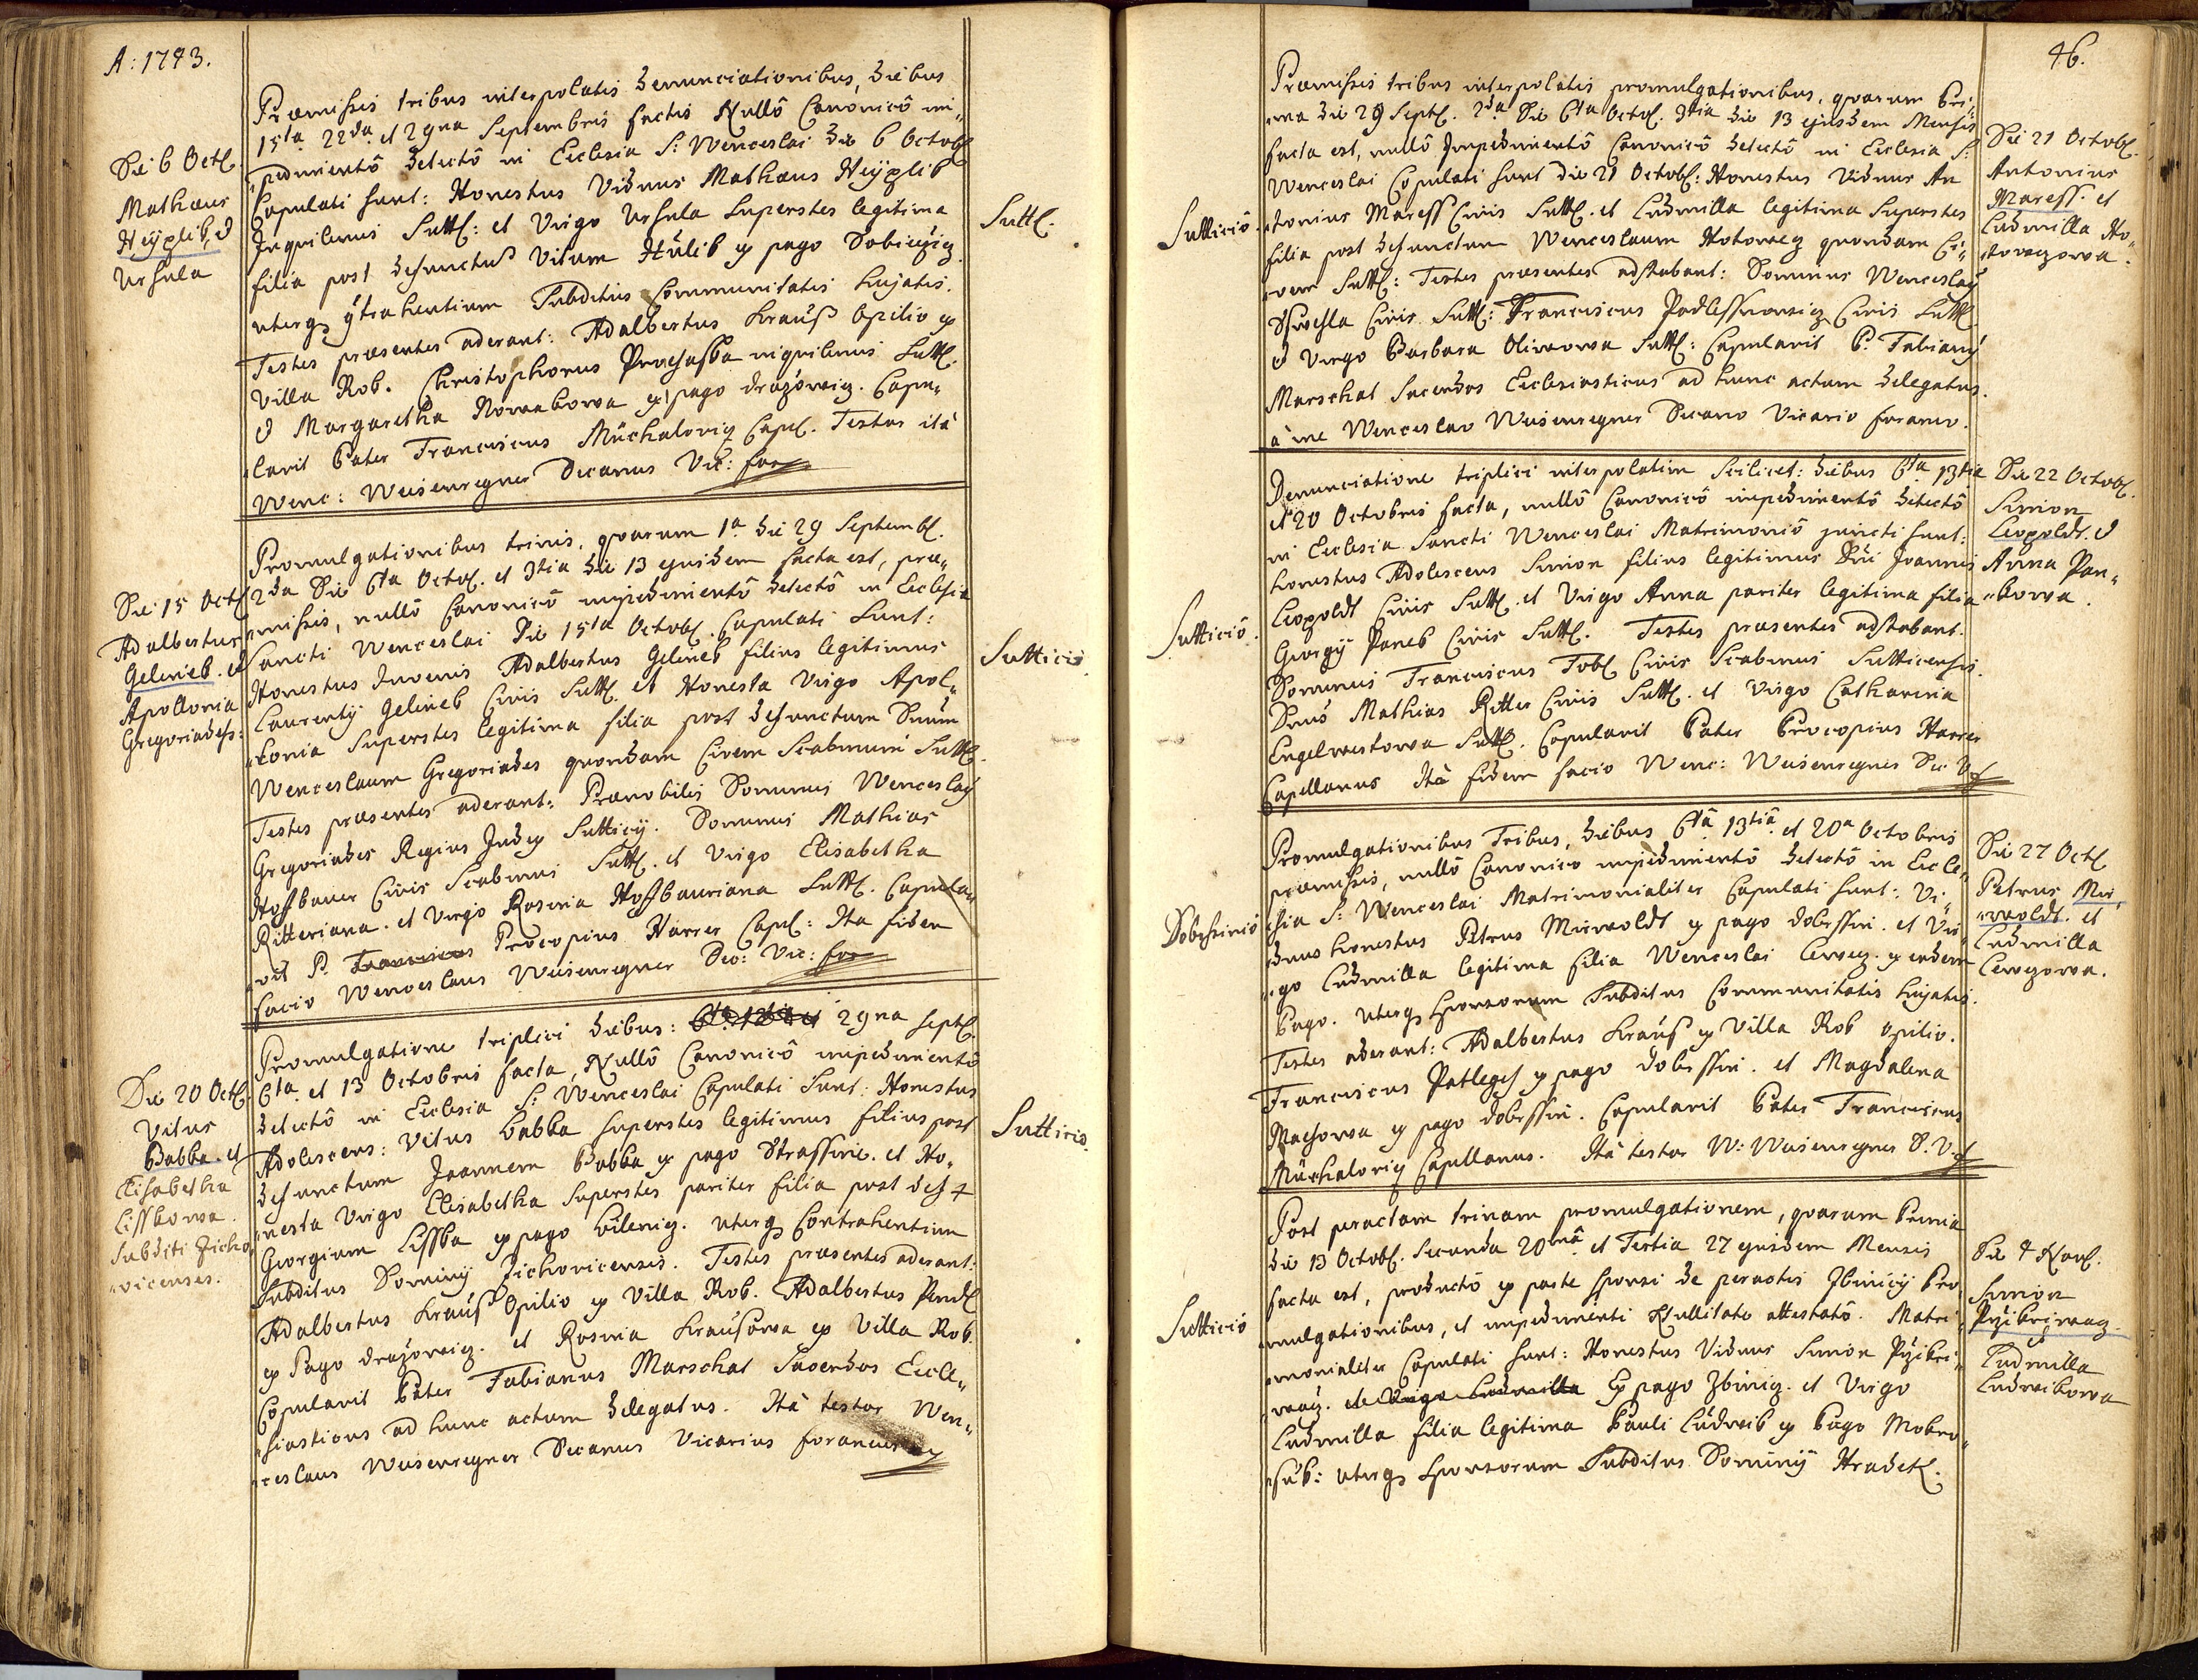 A: 1743.
Præmissis tribus interpolatis denunciationibus, diebus
15ta 22da et 29na Septembris factis Nullô Canonicô im„
„pedimentô detectô in Ecclesia S: Wenceslai die 6 Octob:
Copulati sunt: Honestus Viduus Mathæus
Inquilinus Sutt: et Virgo Ursula Superstes legitima
filia post defunctum Vitum Hulik ex pago
uterq3 9trahentium Subditus Communitatis hujatis.
Testes præsentes aderant: Adalbertus Krauß Opilio ex
Villa Rob. Christophorus Prochaska inquilinus Sutt.
et Margaretha Nowakowa ex pago Drazowicz. Copu„
„lavit Pater Franciscus Müchalovic Capel. Testor ità
Wenc: Weisenregner Decanus Vic: for
Die 6 Oct.
Mathæus
et
Ursula
Sutt.
Promulgationibus trinis, quarum 1a die 29 Septemb.
2da Die 6ta Octob. et 3tia die 13 ejusdem facta est, præ„
„missis, nullô Canonicô impedimentô detectô in Ecclesia
Sancti Wenceslai Die 15ta Octob. Copulati Sunt:
Honestus Juvenis Adalbertus Gelinek filius legitimus
Laurentÿ Gelinek Civis Sutt. et Honesta Virgo Apol„
„lonia Superstes legitima filia post defunctum Dnum
Wenceslaum Gregoriades quondam Civem Scabinum Sutt.
Testes præsentes aderant: Prænobilis Dominus Wenceslaÿ
Gregoriades Regius Judex Sutticÿ. Dominus Mathias
Hoffbauer Civis Scabinus Sutt. et Virgo Elisabetha
Ritteriana. et Virgo Rosina Hoffbaueriana Sutt. Copula„
„vit P. Franciscus Procopius Harrer Capel: Ita fidem
facio Wenceslaus Weisenregner Dec: Vic: for
Die 15 Oct.
Adalbertus
Gelinek. et
Apollonia
Gregoriadess:
Sutticii
Promulgatione triplici diebus: 29na Sept.
6ta et 13 Octobris facta, Nullô Canonicô impedimentô
detectô in Ecclesia S: Wenceslai Copulati Sunt: Honestus
Adolescens: Vitus Babka superstes legitimus filius post
defunctum Joannem Babka ex pago Strassine. et Ho„
„nesta Virgo Elisabetha Superstes pariter filia post def
Georgium Lisska ex pago Bilenicz. uterq3 Contrahentium
Subditus Dominÿ Zichovicensis. Testes præsentes aderant:
Adalbertus Krauß Opilio ex Villa Rob. Adalbertus
ex Pago Drazowicz. et Rosina Kraußowa ex Villa Rob.
Copulavit Pater Fabianus Marschal Sacerdos Eccle„
„siasticus ad hunc actum delegatus. Ità testor Wen„
„ceslaus Weisenregner Decanus Vicarius foraneus
Die 20 Oct.
Vitus
Babka. et
Elisabetha
Lisskowa.
Subditi Zicho„
„vicenses.
Sutticio
46.
Præmissis tribus interpolatis promulgationibus, quarum Pri„
„ma die 29 Sept. 2da Die 6ta Octob. 3tia die 13 ejusdem Mensis
facta est, nullô Impedimentô Canonicô detectô in Ecclesia S:
Wenceslai Copulati sunt die 21 Octob: Honestus Viduus An
„tonius Maress Civis Sutt. et Ludmilla legitima Superstes
filia post defunctum Wenceslaum Hotowecz quondam Ci„
„vem Sutt: Testes præsentes adstabant: Dominus Wenceslaÿ
Civis Sutt: Franciscus Civis Sutt
et Virgo Barbara Oliwowa Sutt: Copulavit P. Fabianÿ
Marschal Sacerdos Ecclesiasticus ad hunc actum delegatus.
à me Wenceslao Weisenregner Decano Vicario foraneo.
Sutticiô.
Die 21 Octob.
Antonius
Maress. et
Ludmilla Ho„
„towczowa.
Denunciatione triplici interpolatim Scilicet: diebus 6ta 13tia
et 20 Octobris facta, nullô Canonicô impedimentô detectô
in Ecclesia Sancti Wenceslai Matrimoniô juncti sunt:
honestus Adolescens Simon filius legitimus Dni Joannis
Leopoldt Civis Sutt. et Virgo Anna pariter legitima filia
Georgÿ Panek Civis Sutt. Testes præsentes adstabant.
Dominus Franciscus Tobl Civis Scabinus Sutticensis.
Dnus Mathias Ritter Civis Sutt. et Virgo Catharina
Engelwertowa Sutt. Copulavit Pater Procopius Harrer
Capellanus Ità fidem facio Wenc: Weisenregner Dec V f
Sutticiô.
Die 22 Octob.
Simon
Leopoldt. et
Anna Pan„
„kowa.
Promulgationibus Tribus, diebus 6ta 13tia et 20a Octobris
præmissis, nullô Canonico impedimentô detectô in Eccle„
„sia S: Wenceslai Matrimonialiter Copulati sunt: Vi„
„duus honestus Petrus Mirwoldt ex pago Dobrssin. et Vir„
„go Ludmilla legitima filia Wenceslai Cerwecz. ex eodem
Pago. uterq3 Sponsorum Subditus Communitatis hujatis.
Testes aderant: Adalbertus Krauß ex Villa Rob opilio.
Franciscus ex pago Dobrssin. et Magdalena
Machowa ex pago Dobrssin. Copulavit Pater Franciscus
Müchalovic Capellanus. Ità testor W: Weisenregner D. V f
Dobrssiniô
Die 27 Oct
Petrus Mir„
„woldt. et
Ludmilla
Cerwczowa.
Post peractam trinam promulgationem, quarum Prima
die 13 Octob. Secunda 20mâ et Tertia 27 ejusdem Mensis
facta est, productô ex parte sponsi de peractis Zbinicÿ Pro„
„mulgationibus, et impedimenti Nullitate attestatô. Matri„
„monialiter Copulati sunt: Honestus Viduus Simon Przikri„
„wacz. et Virgo Ludmilla Ex pago Zbinicz. et Virgo
Ludmilla filia legitima Pauli Ludwik ex Pago Mokro„
„suk: uterq3 Sponsorum Subditus Dominÿ Hradek.
Sutticiô
Die 4 Nov.
Simon
Przikriwacz.
et
Ludmilla
Ludwikowa